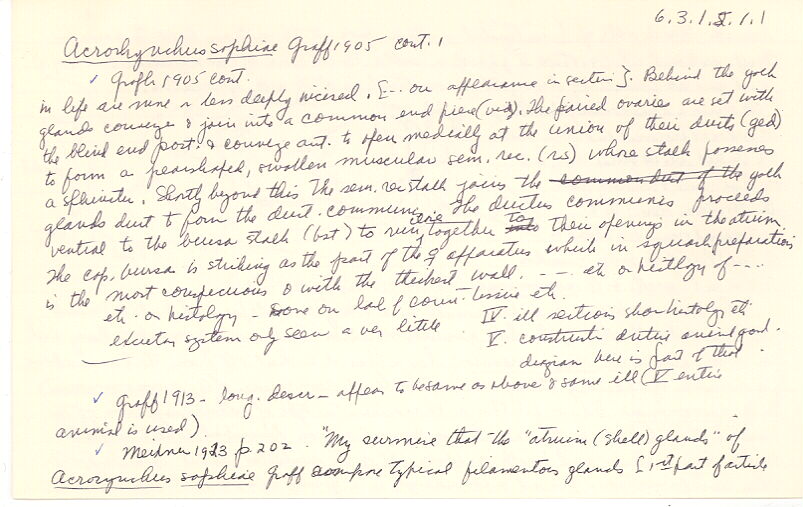 6.3.1.8.1.1
Acrorhynchus sophiae Graff 1905 cont. 1
✓ Graff 1905 cont.
in life are more or less deeply incised. [-- on appearance in section]. Behind the yolk
glands converge & join into a common end piece (vid). The paired ovaries are set with
the blind end post. & converge ant. to open medially at the union of their ducts (ged)
to form a pearshaped, swollen muscular sem. rec. (rs) whose stalk possesses
a sphincter. Shortly beyond this the sem. rec stalk joins the common duct of the yolk
glands duct to form the duct. communis. The ductus communis proceeds
ventral to the bursa stalk (bst) to run close together to their openings in the atrium
The cop. bursa is striking as the part of the ♀ apparatus which in squash preparation
is the most conspicuous & with the thickest wall. --- etc on histology of ---
etc. on histology - more on conn. tissue etc.
excretory system only seen a very little IV. ill sections show histology etc
V. entire animal good.
design here is part of that.
✓ Graff 1913 - long descr - appear to be same as above & same ill (V entire
animal is used)
✓ Meixner 1923 p. 202. "My surmise that the "atrium (shell) glands" of
Acrorynchus sophiae Graff typical filamentous glands [1st part of article